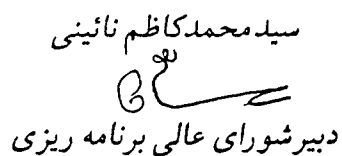 سید محمد کاظم نائینی
دبیر شورای عالی برنامه ریزی